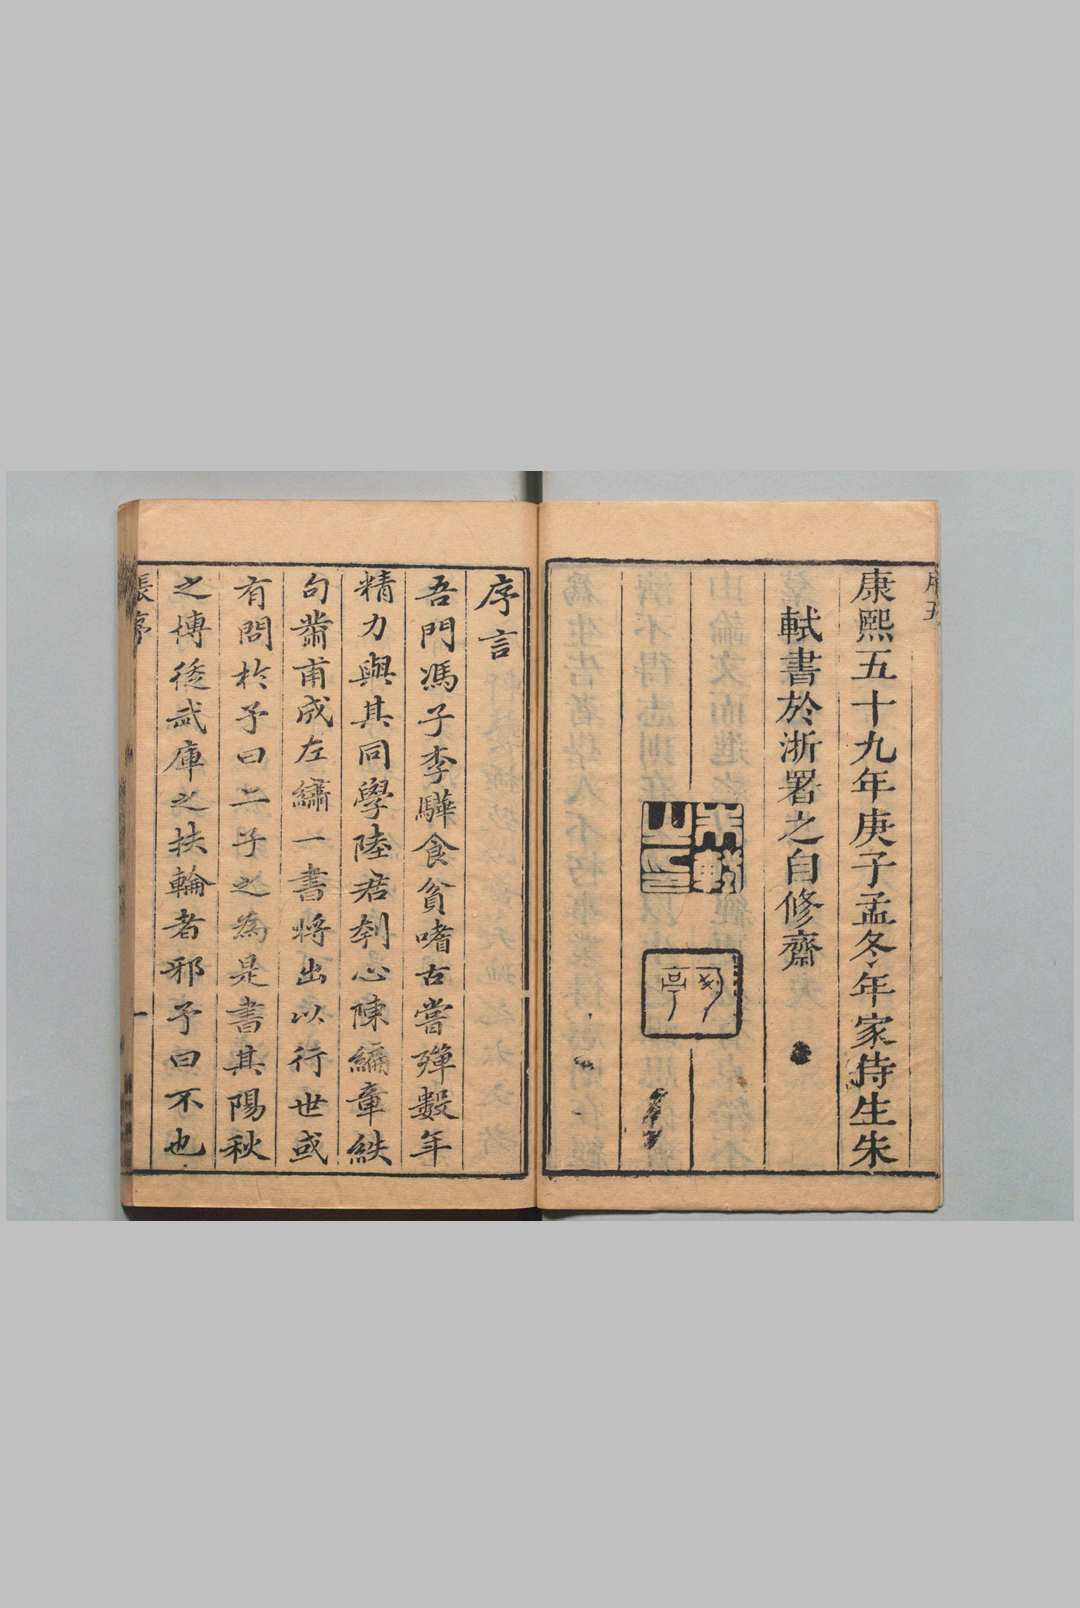 康熙五十九年庚子孟冬年家侍生朱
軾書於浙署之自修齋
朱軾之印
可亭
序言
吾門馮子李驊食貧嗜古嘗殫數年
精力與其同學陸君刳心陳編章紩
句黹甫成左繡一書將出以行世或
有問於予曰二子之為是書其陽秋
之博逶武庫之扶輪者邪予曰不也
張序
一